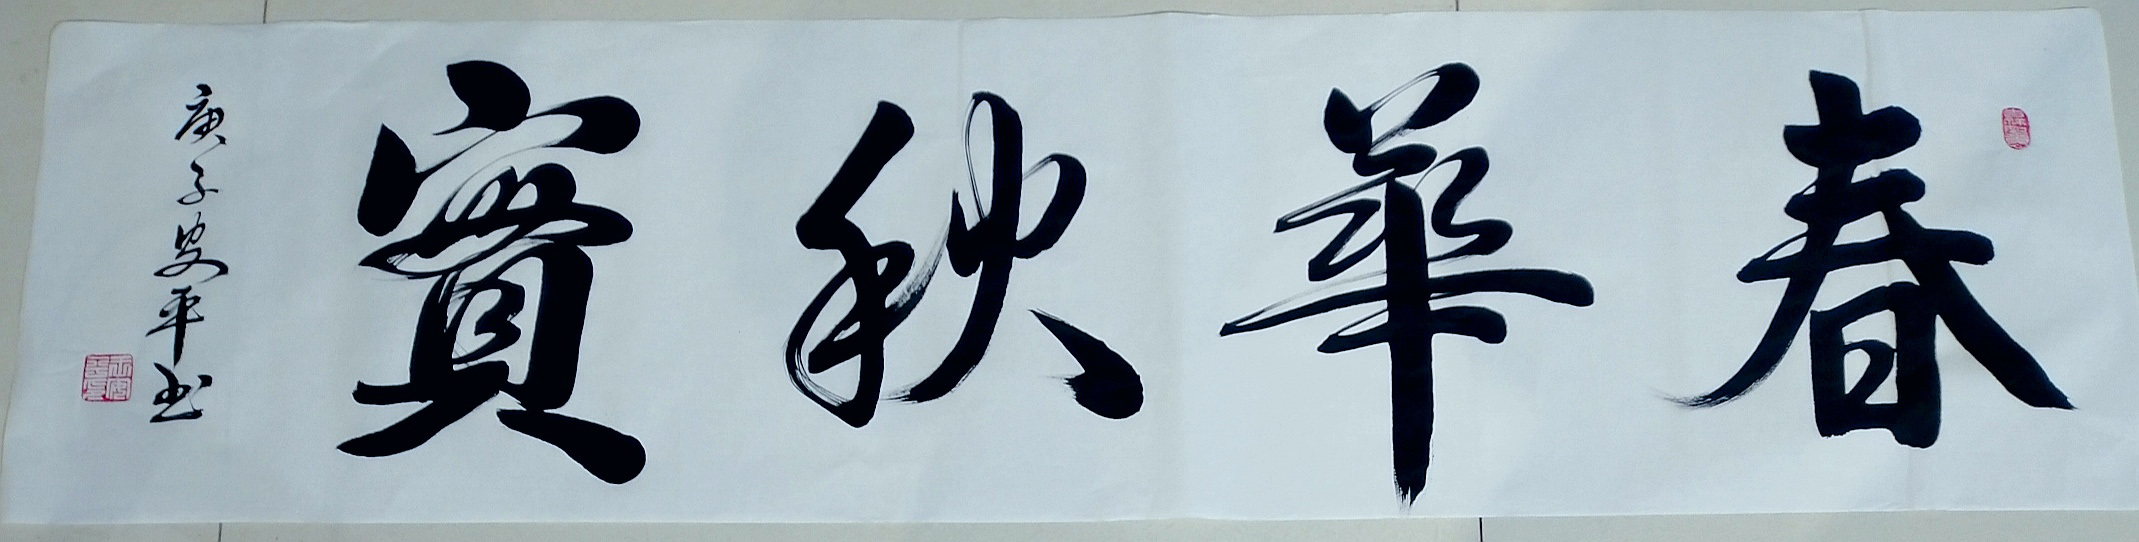 春華秋實
庚子安平书